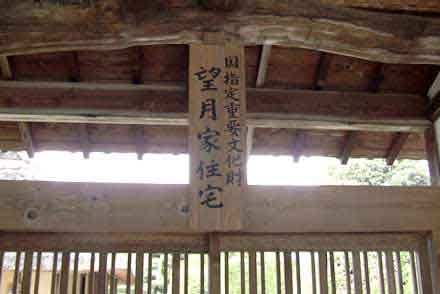 国指定重要文化財
望月家住宅